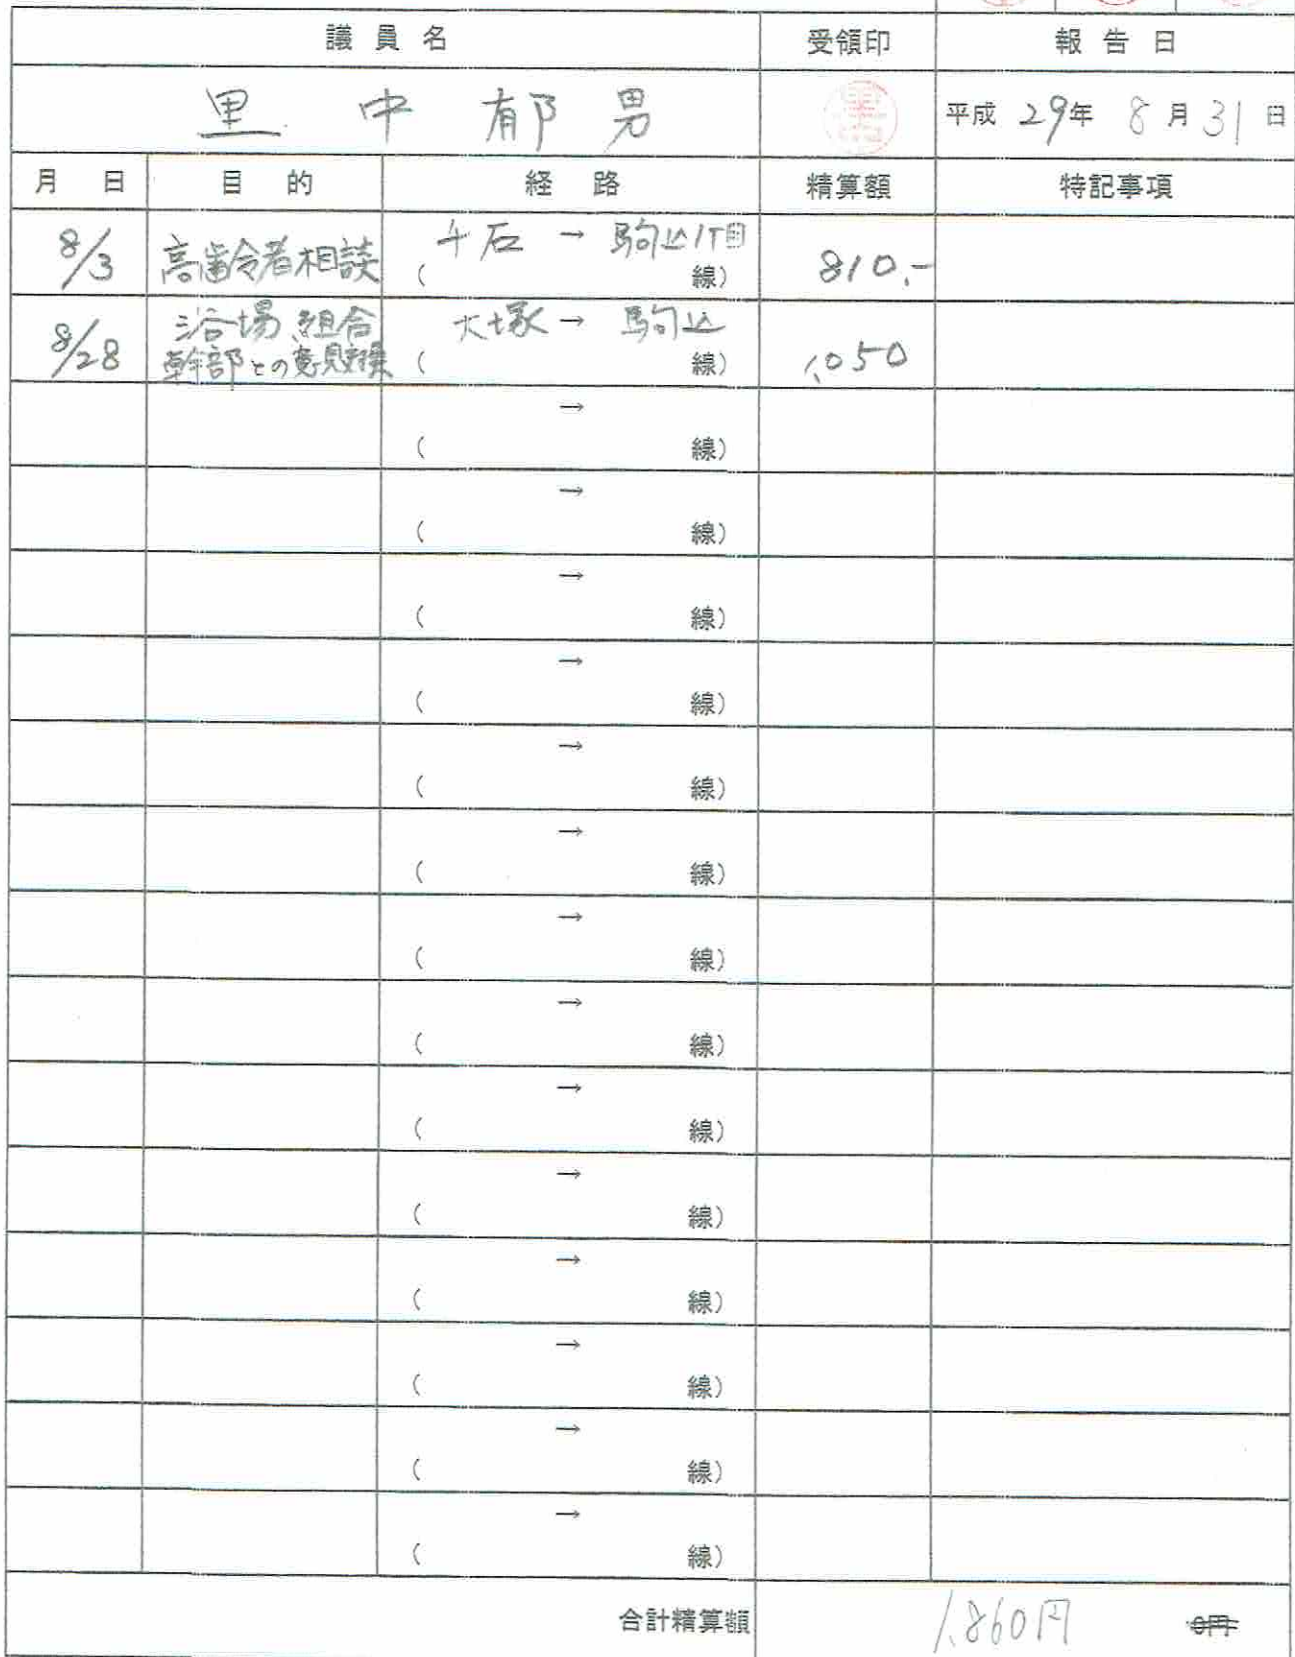 議員名 受領印 報告日
里中郁男 平成29年8月31日
月日 目的 経路 精算額 特記事項
8/3 高齢令者相談 千石 → 駒込1丁目 810.-
( 線)
8/28 浴場組合 大塚 → 駒込 1,050
幹部との意見交換 ( 線)
→
( 線)
→
( 線)
→
( 線)
→
( 線)
→
( 線)
→
( 線)
→
( 線)
→
( 線)
→
( 線)
→
( 線)
→
( 線)
→
( 線)
→
( 線)
→
( 線)
合計精算額 1,860円 0円